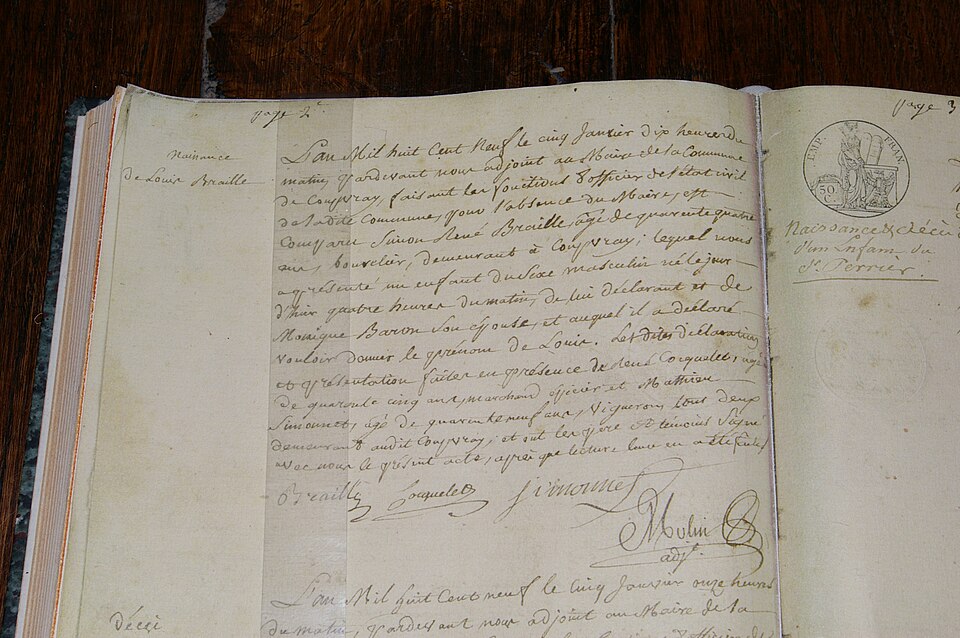 page 2e
Naissance
de Louis Braille
L'an Mil huit Cent Neuf le cinq Janvier dix heures du
matin, pardevant nous adjoint au Maire de la Commune
de Coupvray, faisant les fonctions d'officier de l'état civil
de ladite Commune, pour l'absence du Maire, est
Comparu Simon René Braille, âgé de quarente quatre
ans, bourelier, demeurant à Coupvray; lequel nous
a présenté un enfant du Sexe masculin né le jour
d'hier quatre heures du matin, de lui déclarant et de
Monique Baron Son épouse, et auquel il a déclaré
vouloir donner le prénom de Louis. Les dites déclaration
et présentation faites en présence de Coquelet, agé
de quarente cinq ans, marchand épicier et Mathieu
Simonnet, âgé de quarente neuf ans, Vigneron, tous deux
demeurant audit Coupvray; et ont les père et témoins Signé
avec nous le présent acte, après que lecture leur en a été faite
Braille Coquelet Simonnet
Molin
adjt.
L'an Mil huit Cent neuf le cinq Janvier onze heures
du matin, pardevant nous adjoint au Maire de la
Décès
page 3
EMP. FRAN.
50.
C.
Naissance & décès
d'un Enfant du
Sr. Perrier.